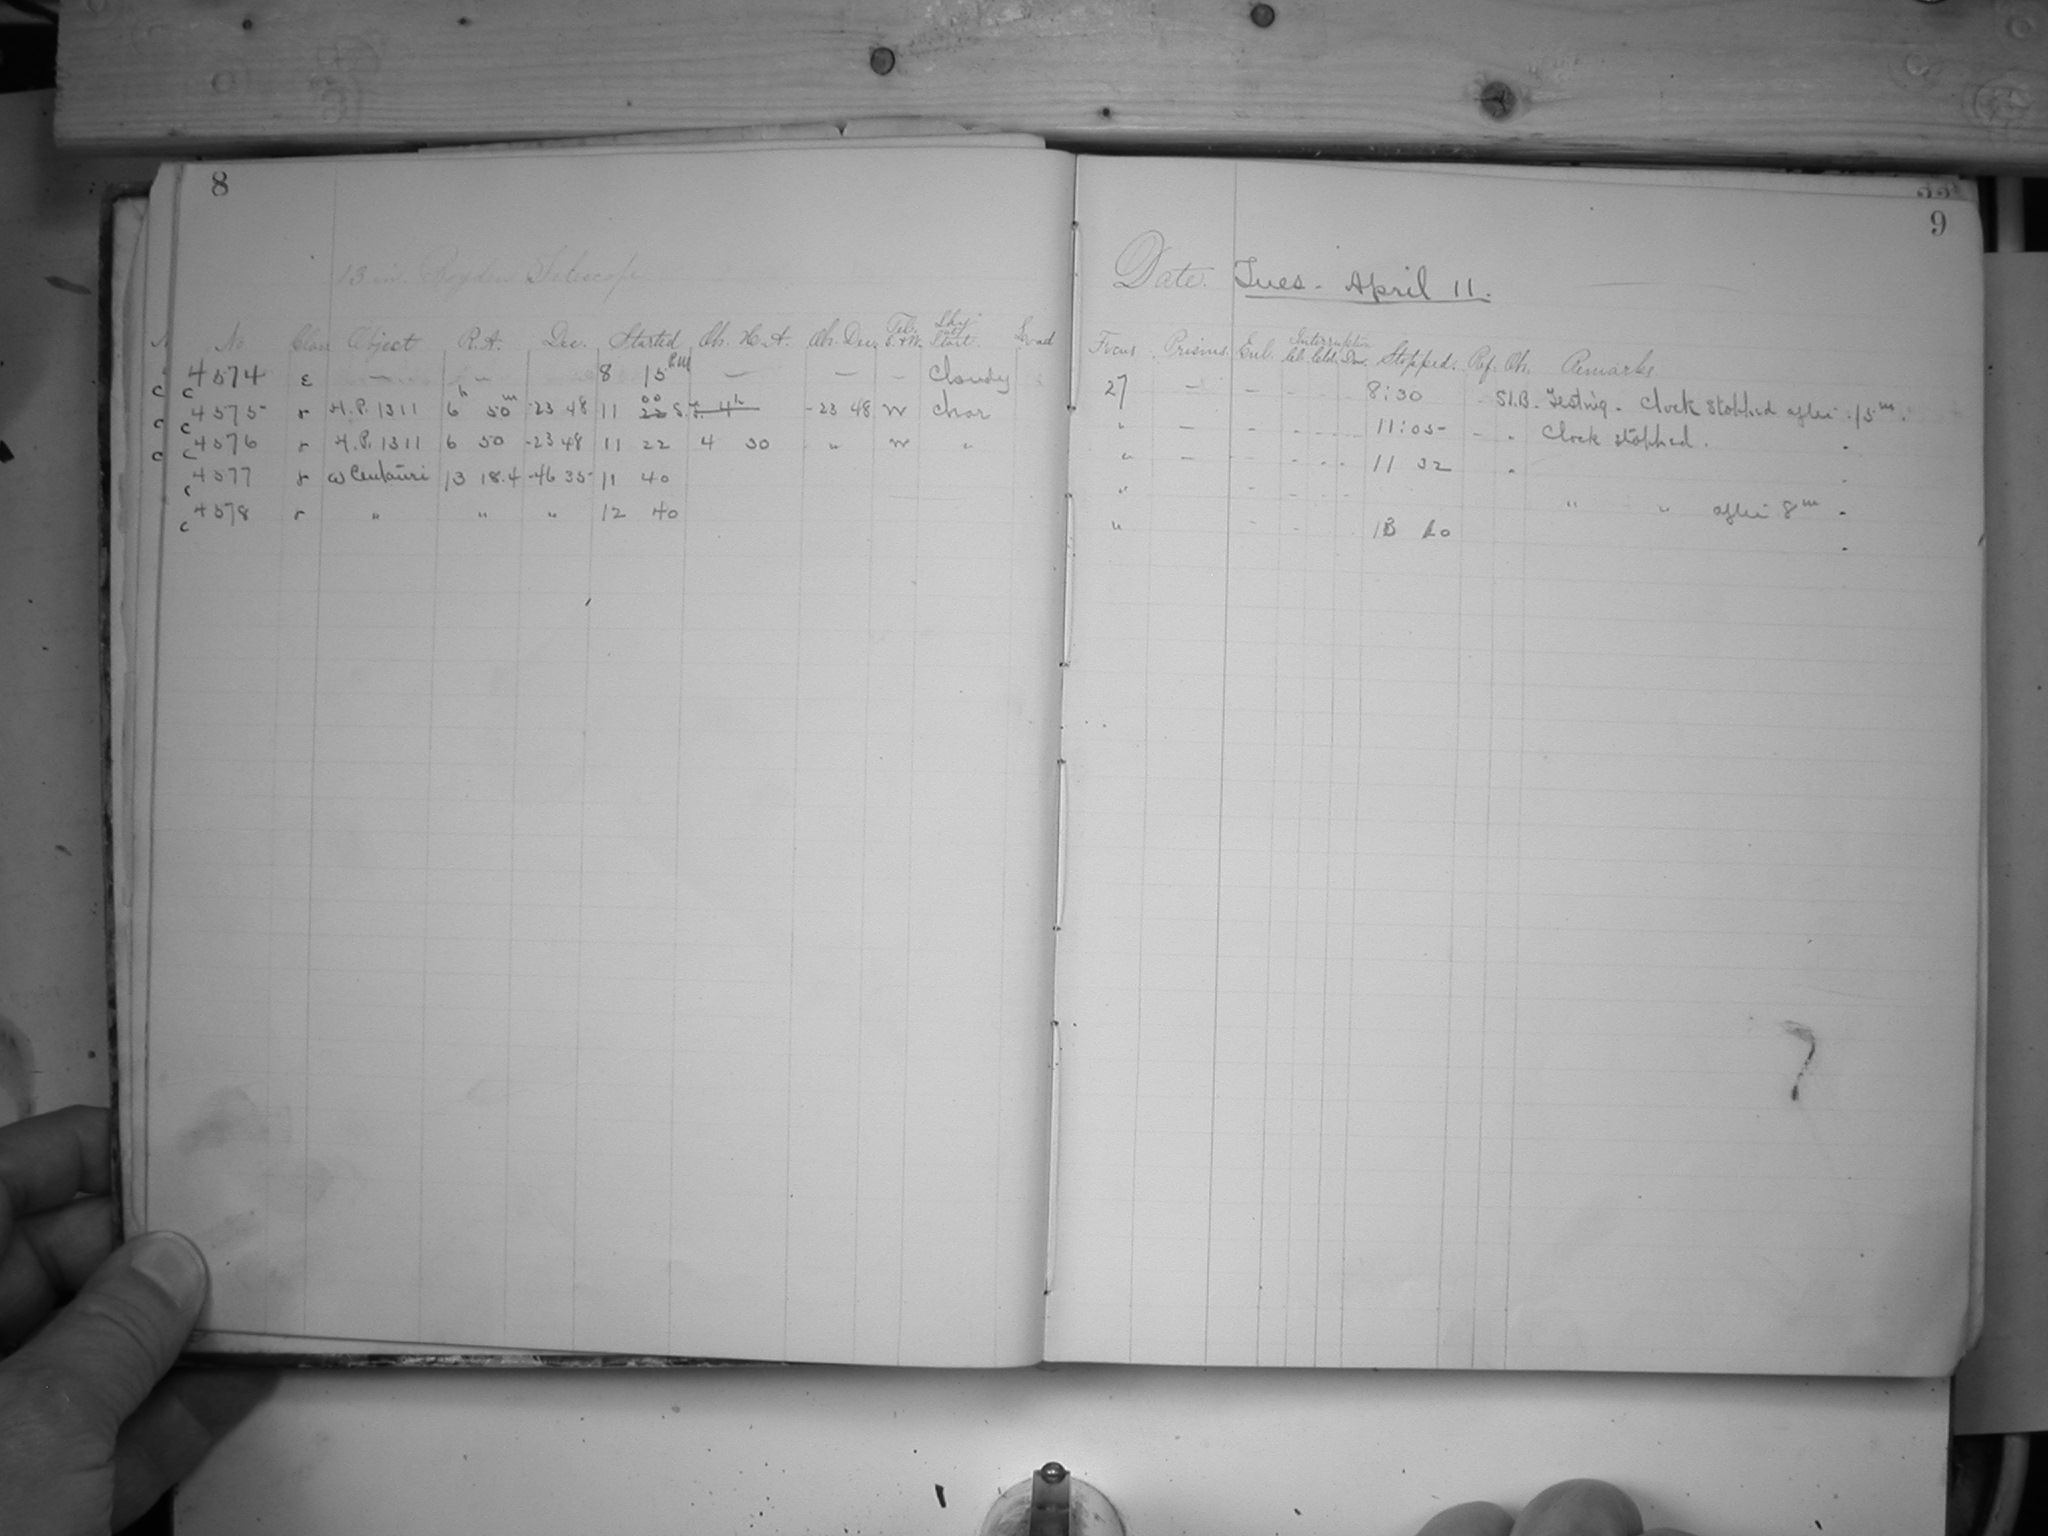 8
13 in. Boyden Telescope
No. Class Object R.A. Dec. Started Ob. H.A. Ob. Dec. Tel. E.+W. Sky at Start.
c 4574 ε — — 8 15 PM — — — Cloudy
c 4575 r H.P. 1311 6h 50m -23 48 11 00 -23 48 W Clear
c 4576 r H.P. 1311 6 50 -23 48 11 22 4 30 " W "
c 4577 r ω Centauri 13 18.4 -46 35 11 40
c 4578 r " " " 12 40
9
Date. Tues. April 11.
Focus Prisms Enl. Interruption Cl. Cld. Dw. Stopped. Ref. Ob. Remarks
27 — — 8:30 S.I.B. Testing. Clock stopped after 15m.
" — - 11:05 - " Clock stopped.
" — - 11 32 "
" " " after 8m
"